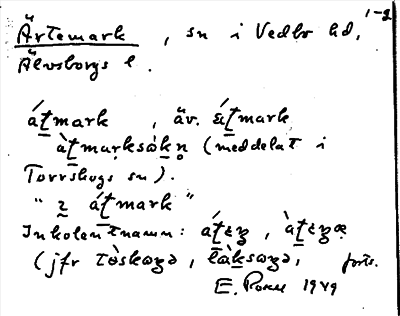 1-2
Ärtemark, sn i Vedbo hd,
Älvsborgs l.
át̠mark, äv. át̠mark
àt̠mar̥ksòkn̥ (meddelat i
Torrskogs sn).
"ꝛ̰ át̠mark"
Inkolentnamn: át̠ɛʒ, àt̠ɛʒæ
(jfr tòskəʒə, làksəʒə, forts.
E. 1949